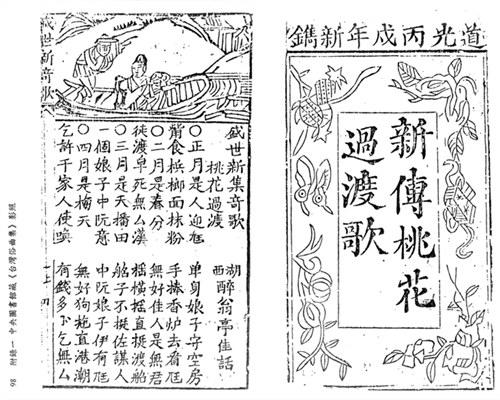 道光丙戌年新鐫
新傳桃花
過渡歌
盛世新奇歌
盛世新集奇歌
桃花過渡
湖西醉翁亭佳話
○正月是人迎尪 單身娘子守空房
食梹榔面抹粉 手捧香炉去看尪
○二月是春分 無好佳人是無君
渡卑死無厶漢 橫搖直挺渡船
○三月是天播田 船子不挺佐謀人
一個娘子中阮意 中阮娘子伊有尪
○四月是梅天 無好狗拖直港潮
乞許千家人使嗔 有錢多卜乞無厶
98 附錄一 中央圖書館藏《台灣俗曲集》影照